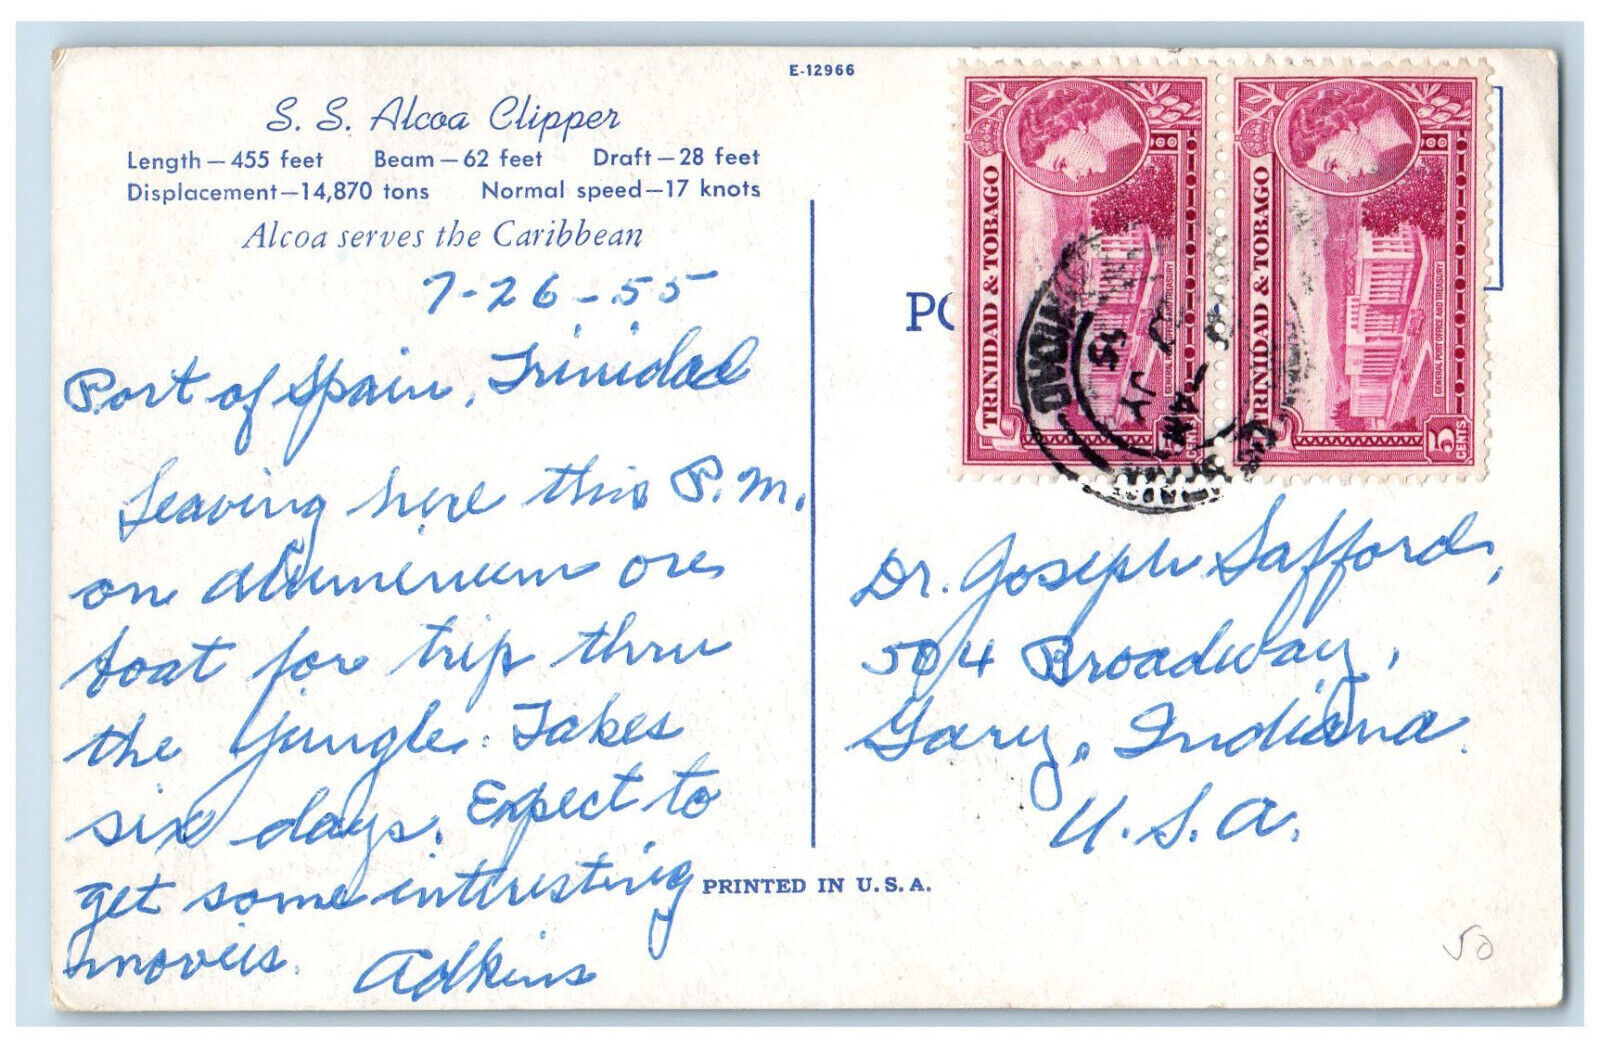 E-12966
S. S. Alcoa Clipper
Length—455 feet Beam—62 feet Draft—28 feet
Displacement—14,870 tons Normal speed—17 knots
Alcoa serves the Caribbean
7-26-55
Port of Spain, Trinidad
Leaving here this P.M.
on aluminum ore
boat for trip thru
the jungle. Takes
six days. Expect to
get some interesting
movies. Adkins
PO
TRINIDAD & TOBAGO
GENERAL POST OFFICE AND TREASURY
5 CENTS
TRINIDAD & TOBAGO
GENERAL POST OFFICE AND TREASURY
5 CENTS
1 AM
JY
55
Dr. Joseph Safford,
504 Broadway,
Gary, Indiana
U.S.A.
PRINTED IN U.S.A.
50